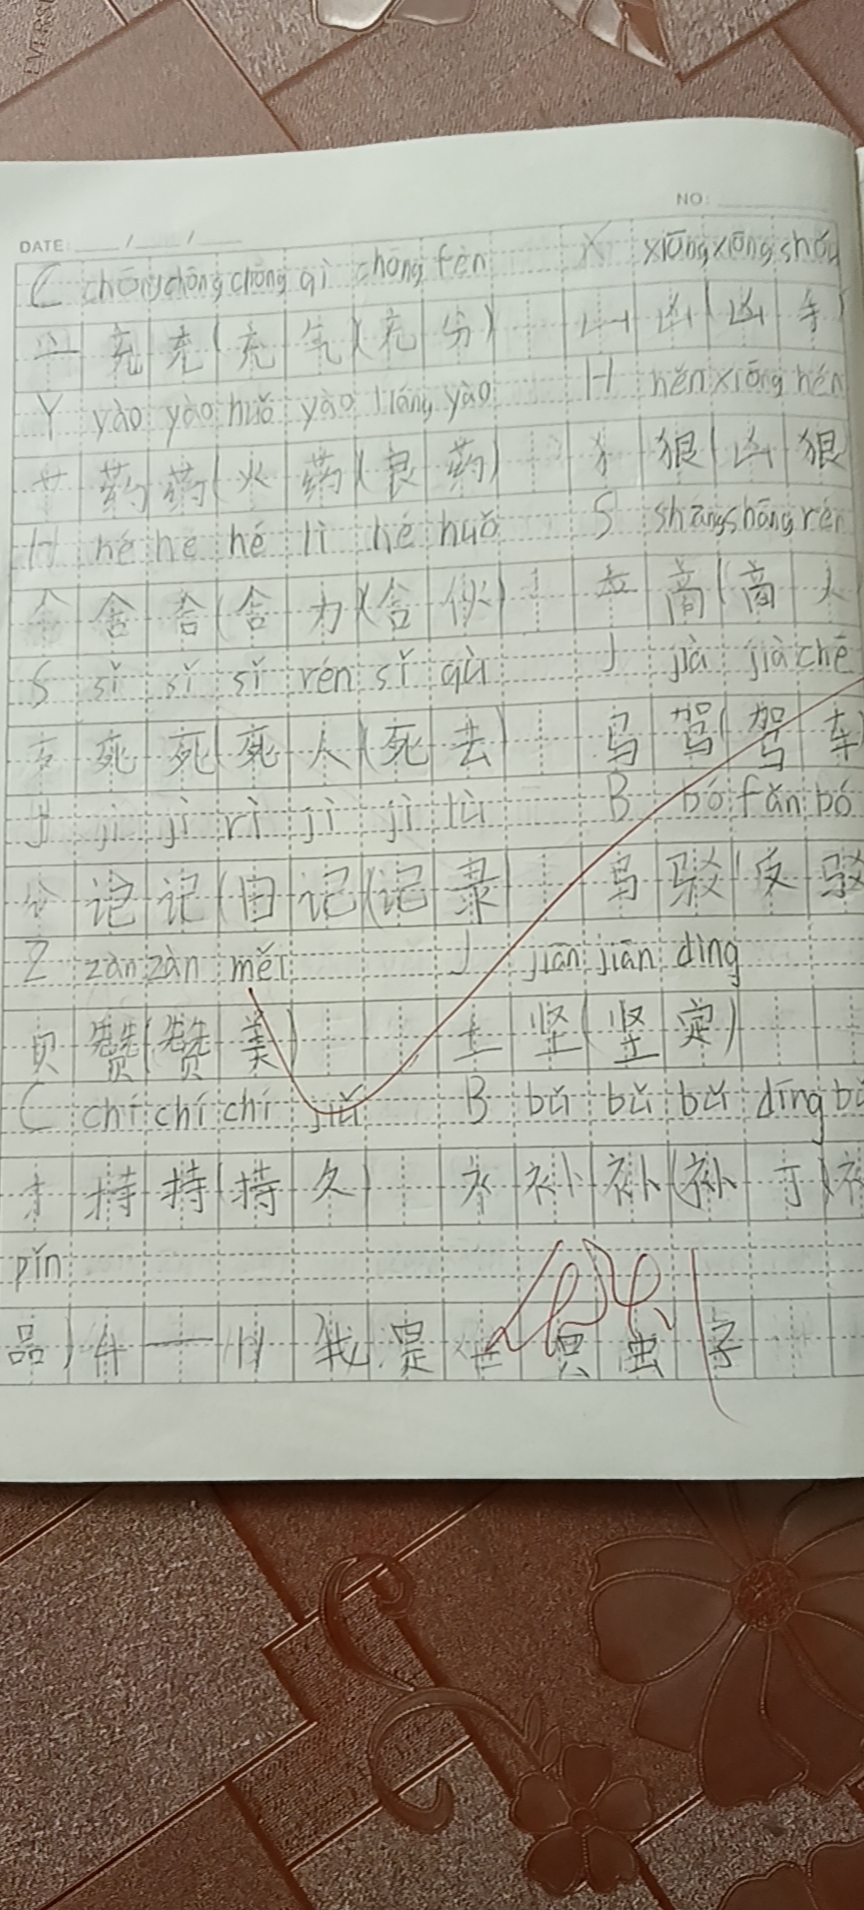 NO:
DATE: / /
C chōng chōng chōng qì chōng fèn X xiōng xiōng shǒu
亠 充 充(充 气)(充 分) 凵 凶(凶 手)
Y yào yào huǒ yào liáng yào H hěn xiōng hěn
艹 药 药(火 药)(良 药) 犭 狠(凶 狠
H hé hé hé lì hé huǒ S shāng shāng rén
人 合 合(合 力)(合 伙) 亠 商(商 人
S sǐ sǐ sǐ rén sǐ qù J jià jià chē
歹 死 死(死 人)(死 去) 马 驾(驾 车)
J jì jì rì jì jì lù B bó fǎn bó
讠 记 记(日 记)(记 录) 马 驳(反 驳
Z zàn zàn měi J jiān jiān dìng
贝 赞(赞 美) 土 坚(坚 定)
C chí chí chí jiǔ B bǔ bǔ bǔ dīng bǔ
扌 持 持(持 久) 衤 补 补(补 丁)补
pǐn
品) 4 — 11 我 是 虫 子